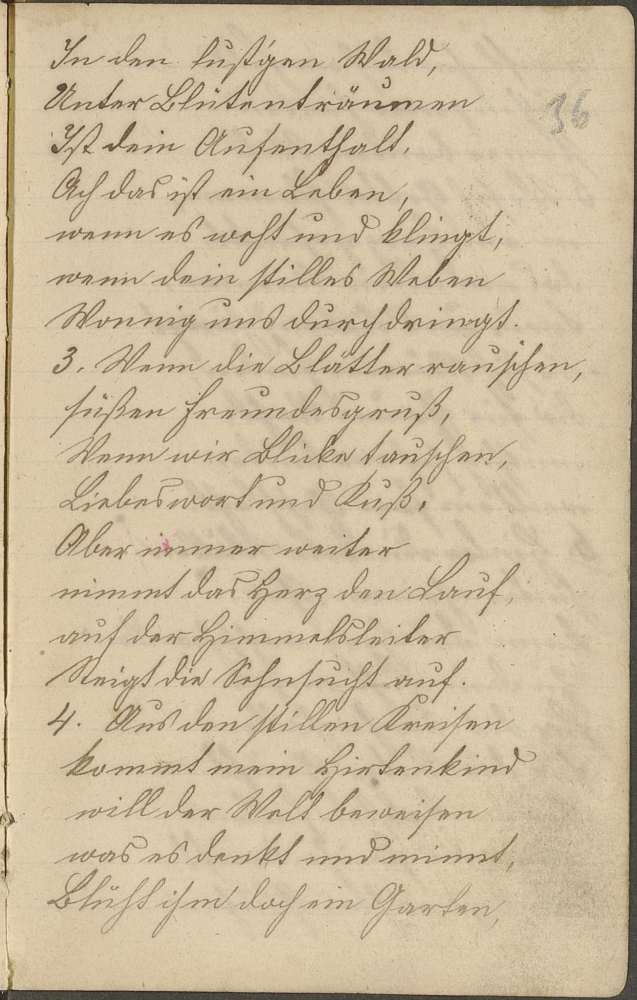 In den lustgen Wald,
Unter Blütenträumen
36
Ist dein Aufenthalt.
Ach das ist ein Leben,
wenn es weht und klingt,
wenn dein stilles Weben
Wonnig uns durchdringt.
3. Wenn die Blätter rauschen,
süßen Freundesgruß,
Wenn wir Blicke tauschen,
Liebeswort und Kuß,
Aber immer weiter
nimmt das Herz den Lauf,
auf der Himmelsleiter
Steigt die Sehnsucht auf.
4. Aus den stillen Kreisen
kommt mein Hirtenkind
will der Welt beweisen
was es denkt und minnt,
Blüht ihm doch ein Garten,